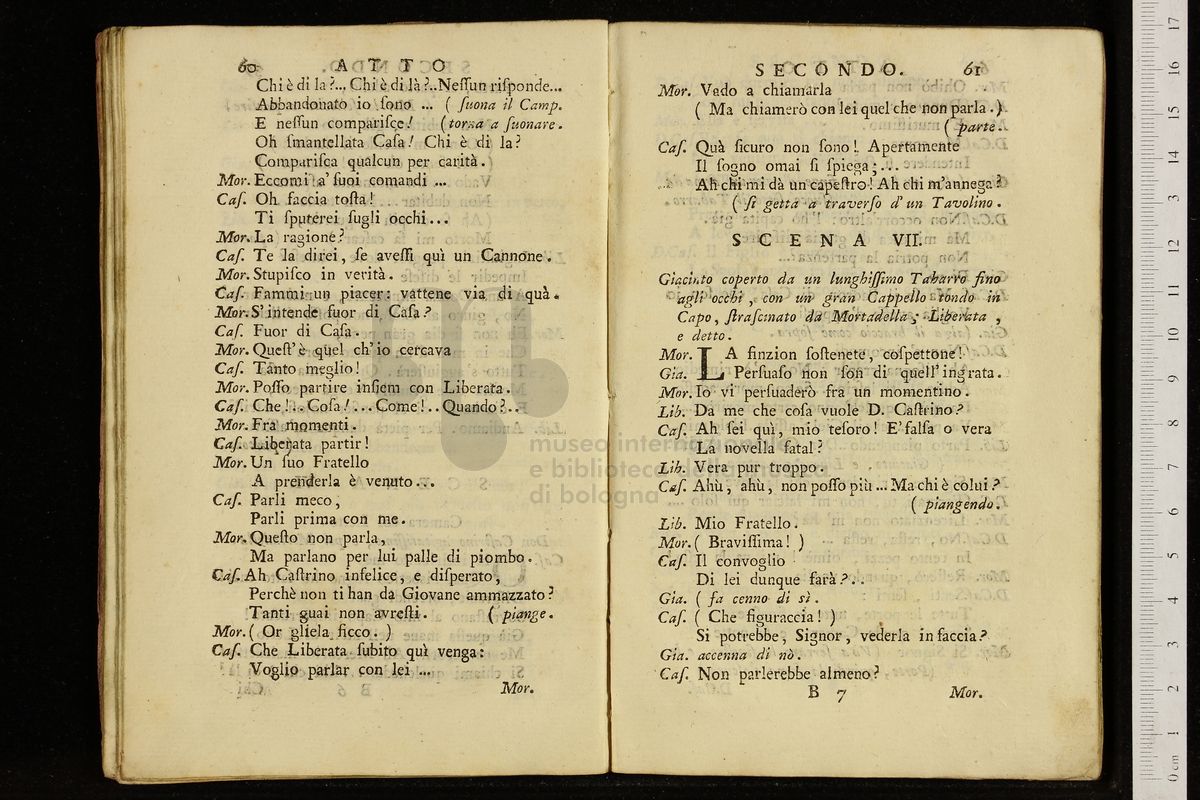 60 ATTO
Chi è di la?... Chi è di là?..Neſſun riſponde...
Abbandonato io ſono ... ( ſuona il Camp.
E neſſun compariſce! (torna a ſuonare.
Oh ſmantellata Caſa! Chi è di la?
Compariſca qualcun per carità.
Mor. Eccomi a' ſuoi comandi ...
Caſ. Oh faccia toſta!
Ti ſputerei ſugli occhi...
Mor. La ragione?
Caſ. Te la direi, ſe aveſſi quì un Cannone.
Mor. Stupiſco in verità.
Caſ. Fammi un piacer: vattene via di quà.
Mor. S'intende fuor di Caſa?
Caſ. Fuor di Caſa.
Mor. Queſt' è quel ch' io cercava
Caſ. Tanto meglio!
Mor. Poſſo partire inſiem con Liberata.
Caſ. Che!.. Coſa!... Come!.. Quando?..
Mor. Fra momenti.
Caſ. Liberata partir!
Mor. Un ſuo Fratello
A prenderla è venuto...
Caſ. Parli meco,
Parli prima con me.
Mor. Queſto non parla,
Ma parlano per lui palle di piombo.
Caſ. Ah Caſtrino infelice, e diſperato,
Perchè non ti han da Giovane ammazzato?
Tanti guai non avreſti. ( piange.
Mor. ( Or gliela ficco. )
Caſ. Che Liberata ſubito quì venga:
Voglio parlar con lei ...
Mor.
SECONDO. 61
Mor. Vado a chiamarla
( Ma chiamerò con lei quel che non parla.)
( parte.
Caſ. Quà ſicuro non ſono! Apertamente
Il ſogno omai ſi ſpiega;...
Ah chi mi dà un capeſtro! Ah chi m'annega?
( ſi getta a traverſo d' un Tavolino.
SCENA VII.
Giacinto coperto da un lunghiſſimo Tabarro fino
agli occhi, con un gran Cappello tondo in
Capo, ſtraſcinato da Mortadella; Liberata,
e detto.
Mor. LA finzion ſoſtenete, coſpettone!
Gia. Perſuaſo non ſon di quell' ingrata.
Mor. Io vi perſuaderò fra un momentino.
Lib. Da me che coſa vuole D. Caſtrino?
Caſ. Ah ſei quì, mio teſoro! E' falſa o vera
La novella fatal?
Lib. Vera pur troppo.
Caſ. Ahù, ahù, non poſſo più ... Ma chi è colui?
( piangendo.
Lib. Mio Fratello.
Mor. ( Braviſſima! )
Caſ. Il convoglio
Di lei dunque farà?..
Gia. ( fa cenno di sì.
Caſ. ( Che figuraccia! )
Si potrebbe, Signor, vederla in faccia?
Gia. accenna di nò.
Caſ. Non parlerebbe almeno?
B 7 Mor.
museo internazionale
e biblioteca della musica
di bologna